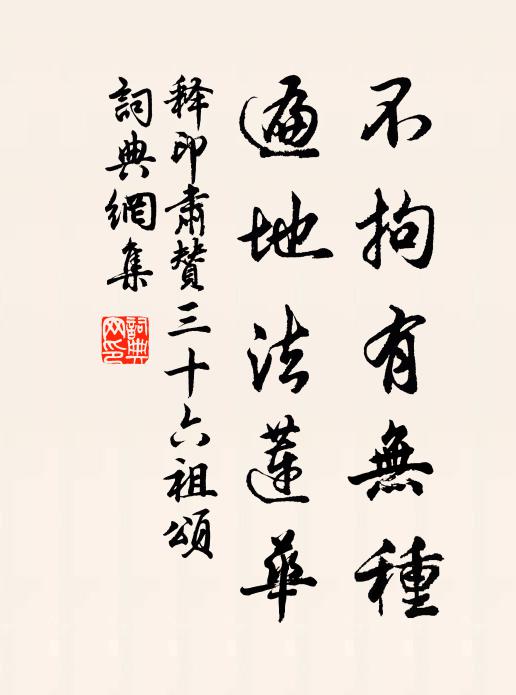 不拘有無種
遍地法蓮華
釋印肅贊三十六祖頌
詞典網集
詞典網印